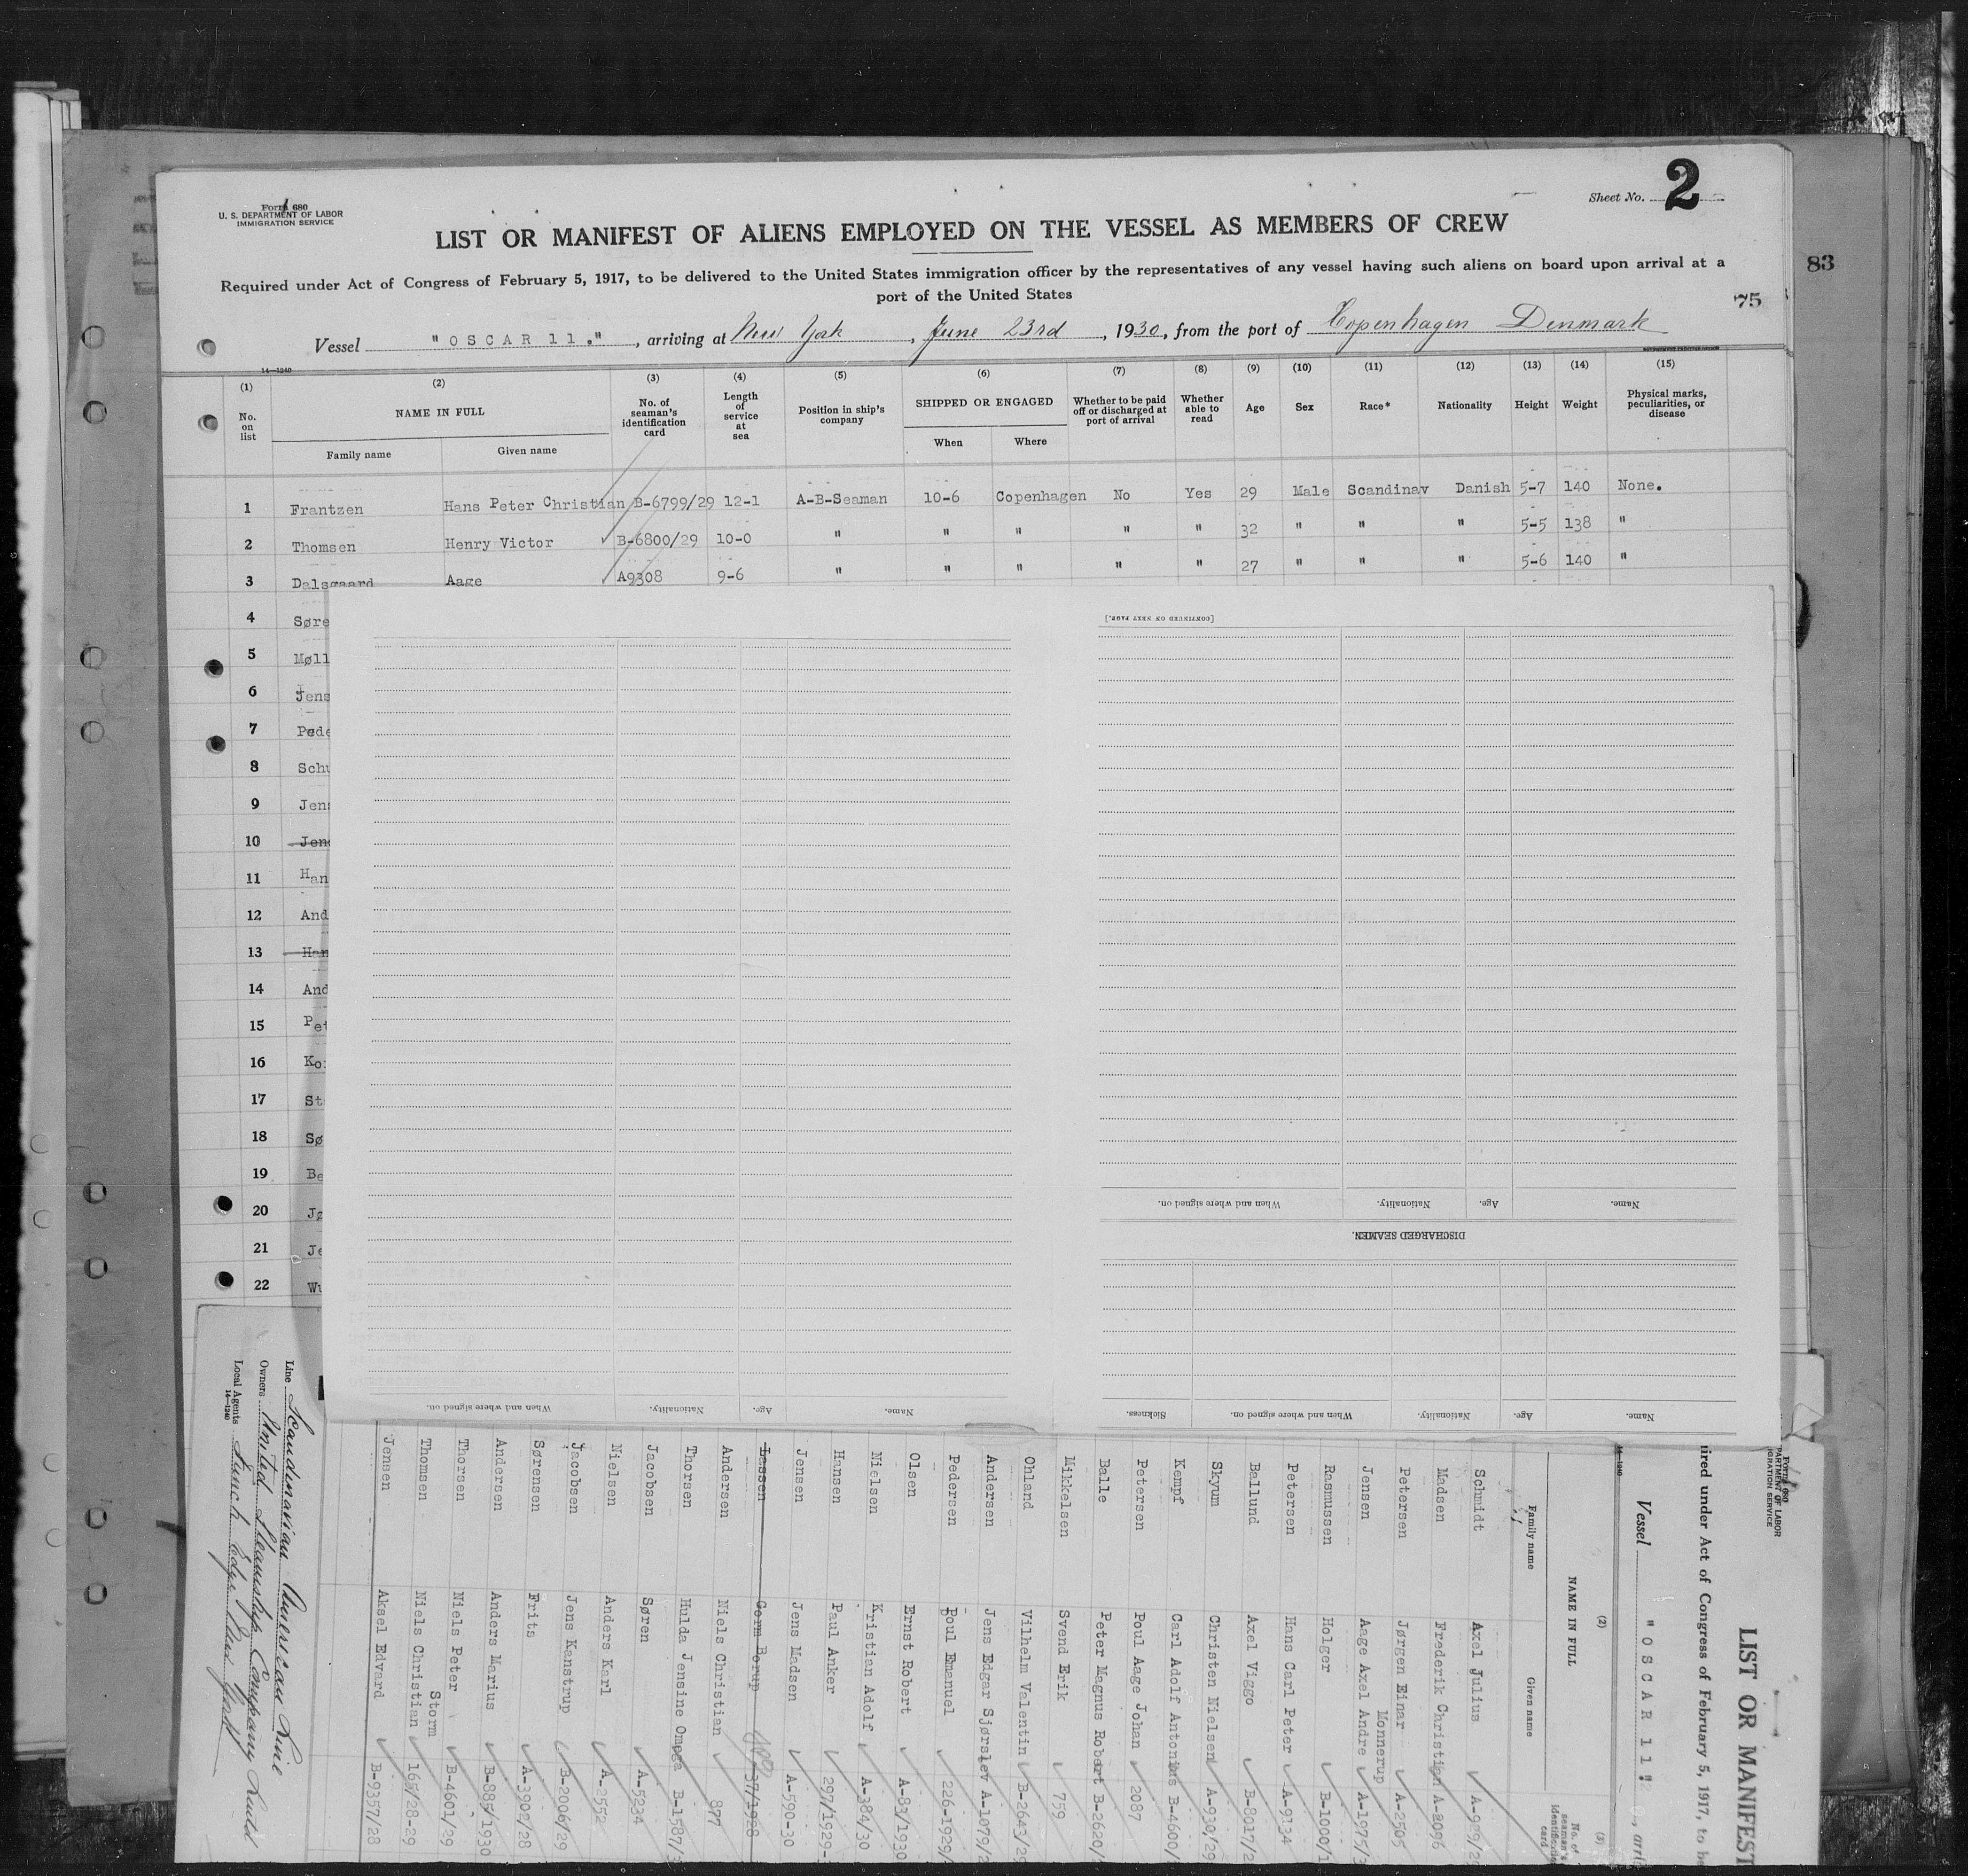 Form 680
U. S. DEPARTMENT OF LABOR
IMMIGRATION SERVICE
Sheet No. 2
LIST OR MANIFEST OF ALIENS EMPLOYED ON THE VESSEL AS MEMBERS OF CREW
83
Required under Act of Congress of February 5, 1917, to be delivered to the United States immigration officer by the representatives of any vessel having such aliens on board upon arrival at a
port of the United States
75
Vessel "OSCAR 11.", arriving at New York, June 23rd, 1930, from the port of Copenhagen Denmark
14—1240
(1) (2) (3) (4) (5) (6) (7) (8) (9) (10) (11) (12) (13) (14) (15)
No. on list
NAME IN FULL
Family name
Given name
No. of seaman's identification card
Length of service at sea
Position in ship's company
SHIPPED OR ENGAGED
When
Where
Whether to be paid off or discharged at port of arrival
Whether able to read
Age
Sex
Race*
Nationality
Height
Weight
Physical marks, peculiarities, or disease
1 Frantzen Hans Peter Christian B-6799/29 12-1 A-B-Seaman 10-6 Copenhagen No Yes 29 Male Scandinav Danish 5-7 140 None.
2 Thomsen Henry Victor B-6800/29 10-0 " " " " " 32 " " " 5-5 138 "
3 Dalsgaard Aage A9308 9-6 " " " " " 27 " " " 5-6 140 "
4 Søre
5 Møll
6 Jens
7 Pede
8 Schu
9 Jens
10 Jens
11 Han
12 And
13 Han
14 And
15 Pet
16 Ko
17 St
18 Sø
19 Be
20 Jø
21 Je
22 Wu
[CONTINUED ON NEXT PAGE.]
When and where signed on.
Nationality.
Age.
Name.
DISCHARGED SEAMEN.
When and where signed on.
Nationality.
Age.
Name.
Sickness.
When and where signed on.
Nationality.
Age.
Name.
Line Scandinavian American Line
Owners United Steamship Company
Local Agents Funch Edye New York
14—1240
Form 680
PARTMENT OF LABOR
IGRATION SERVICE
LIST OR MANIFEST
ired under Act of Congress of February 5, 1917, to be
Vessel "OSCAR 11", arri
14—1240
(2)
(3)
NAME IN FULL
Family name
Given name
No. of seaman's identification card
Schmidt Axel Julius
Madsen Frederik Christian A-2096
Petersen Jørgen Einar A-2505
Monnerup
Jensen Aage Axel Andre A-1975/3
Rasmussen Holger B-1000/1
Petersen Hans Carl Peter A-9134
Ballund Axel Viggo B-8017/2
Skyum Christen Nielsen A-930/29
Kempf Carl Adolf Antonius B-4600/
Petersen Poul Aage Johan 2087
Balle Peter Magnus Robert B-2620/
Mikkelsen Svend Erik 759
Ohland Vilhelm Valentin B-2643/29
Andersen Jens Edgar Sjørslev A-1079/2
Pedersen Poul Emanuel 226-1929/
Olsen Ernst Robert A-83/1930
Nielsen Kristian Adolf A-384/30
Hansen Paul Anker 297/1929-
Jensen Jens Madsen A-590-30
Lassen Gorm Borup 37/1928
Andersen Niels Christian 877
Thorsen Hulda Jensine Omega B-1587/
Jacobsen Søren A-5834
Nielsen Anders Karl A-2552
Jacobsen Jens Kanstrup B-2006/29
Sørensen Frits A-3902/28
Andersen Anders Marius B-885/1930
Thorsen Niels Peter B-4601/29
Storm
Thomsen Niels Christian 165/28-29
Jensen Aksel Edvard B-9357/28